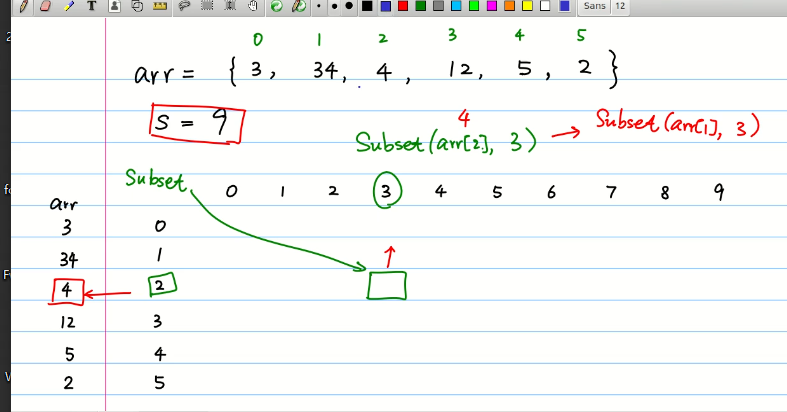 T Sans 12
0 1 2 3 4 5
arr = { 3, 34, 4, 12, 5, 2 }
S = 9
4
Subset(arr[2], 3) → Subset(arr[1], 3)
Subset 0 1 2 3 4 5 6 7 8 9
arr
3 0
34 1
4 2
12 3
5 4
2 5